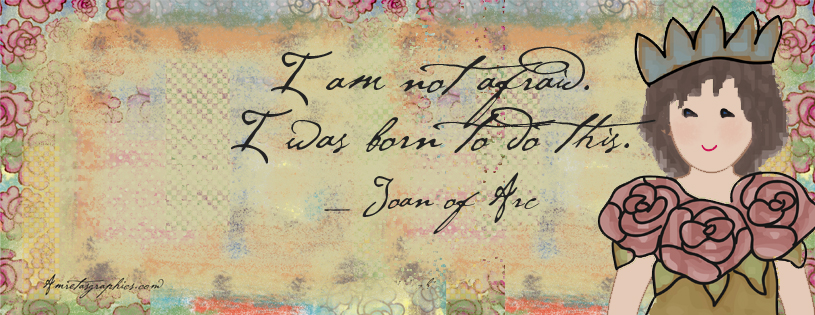 I am not afraid.
I was born to do this.
— Joan of Arc
Amretasgraphics.com